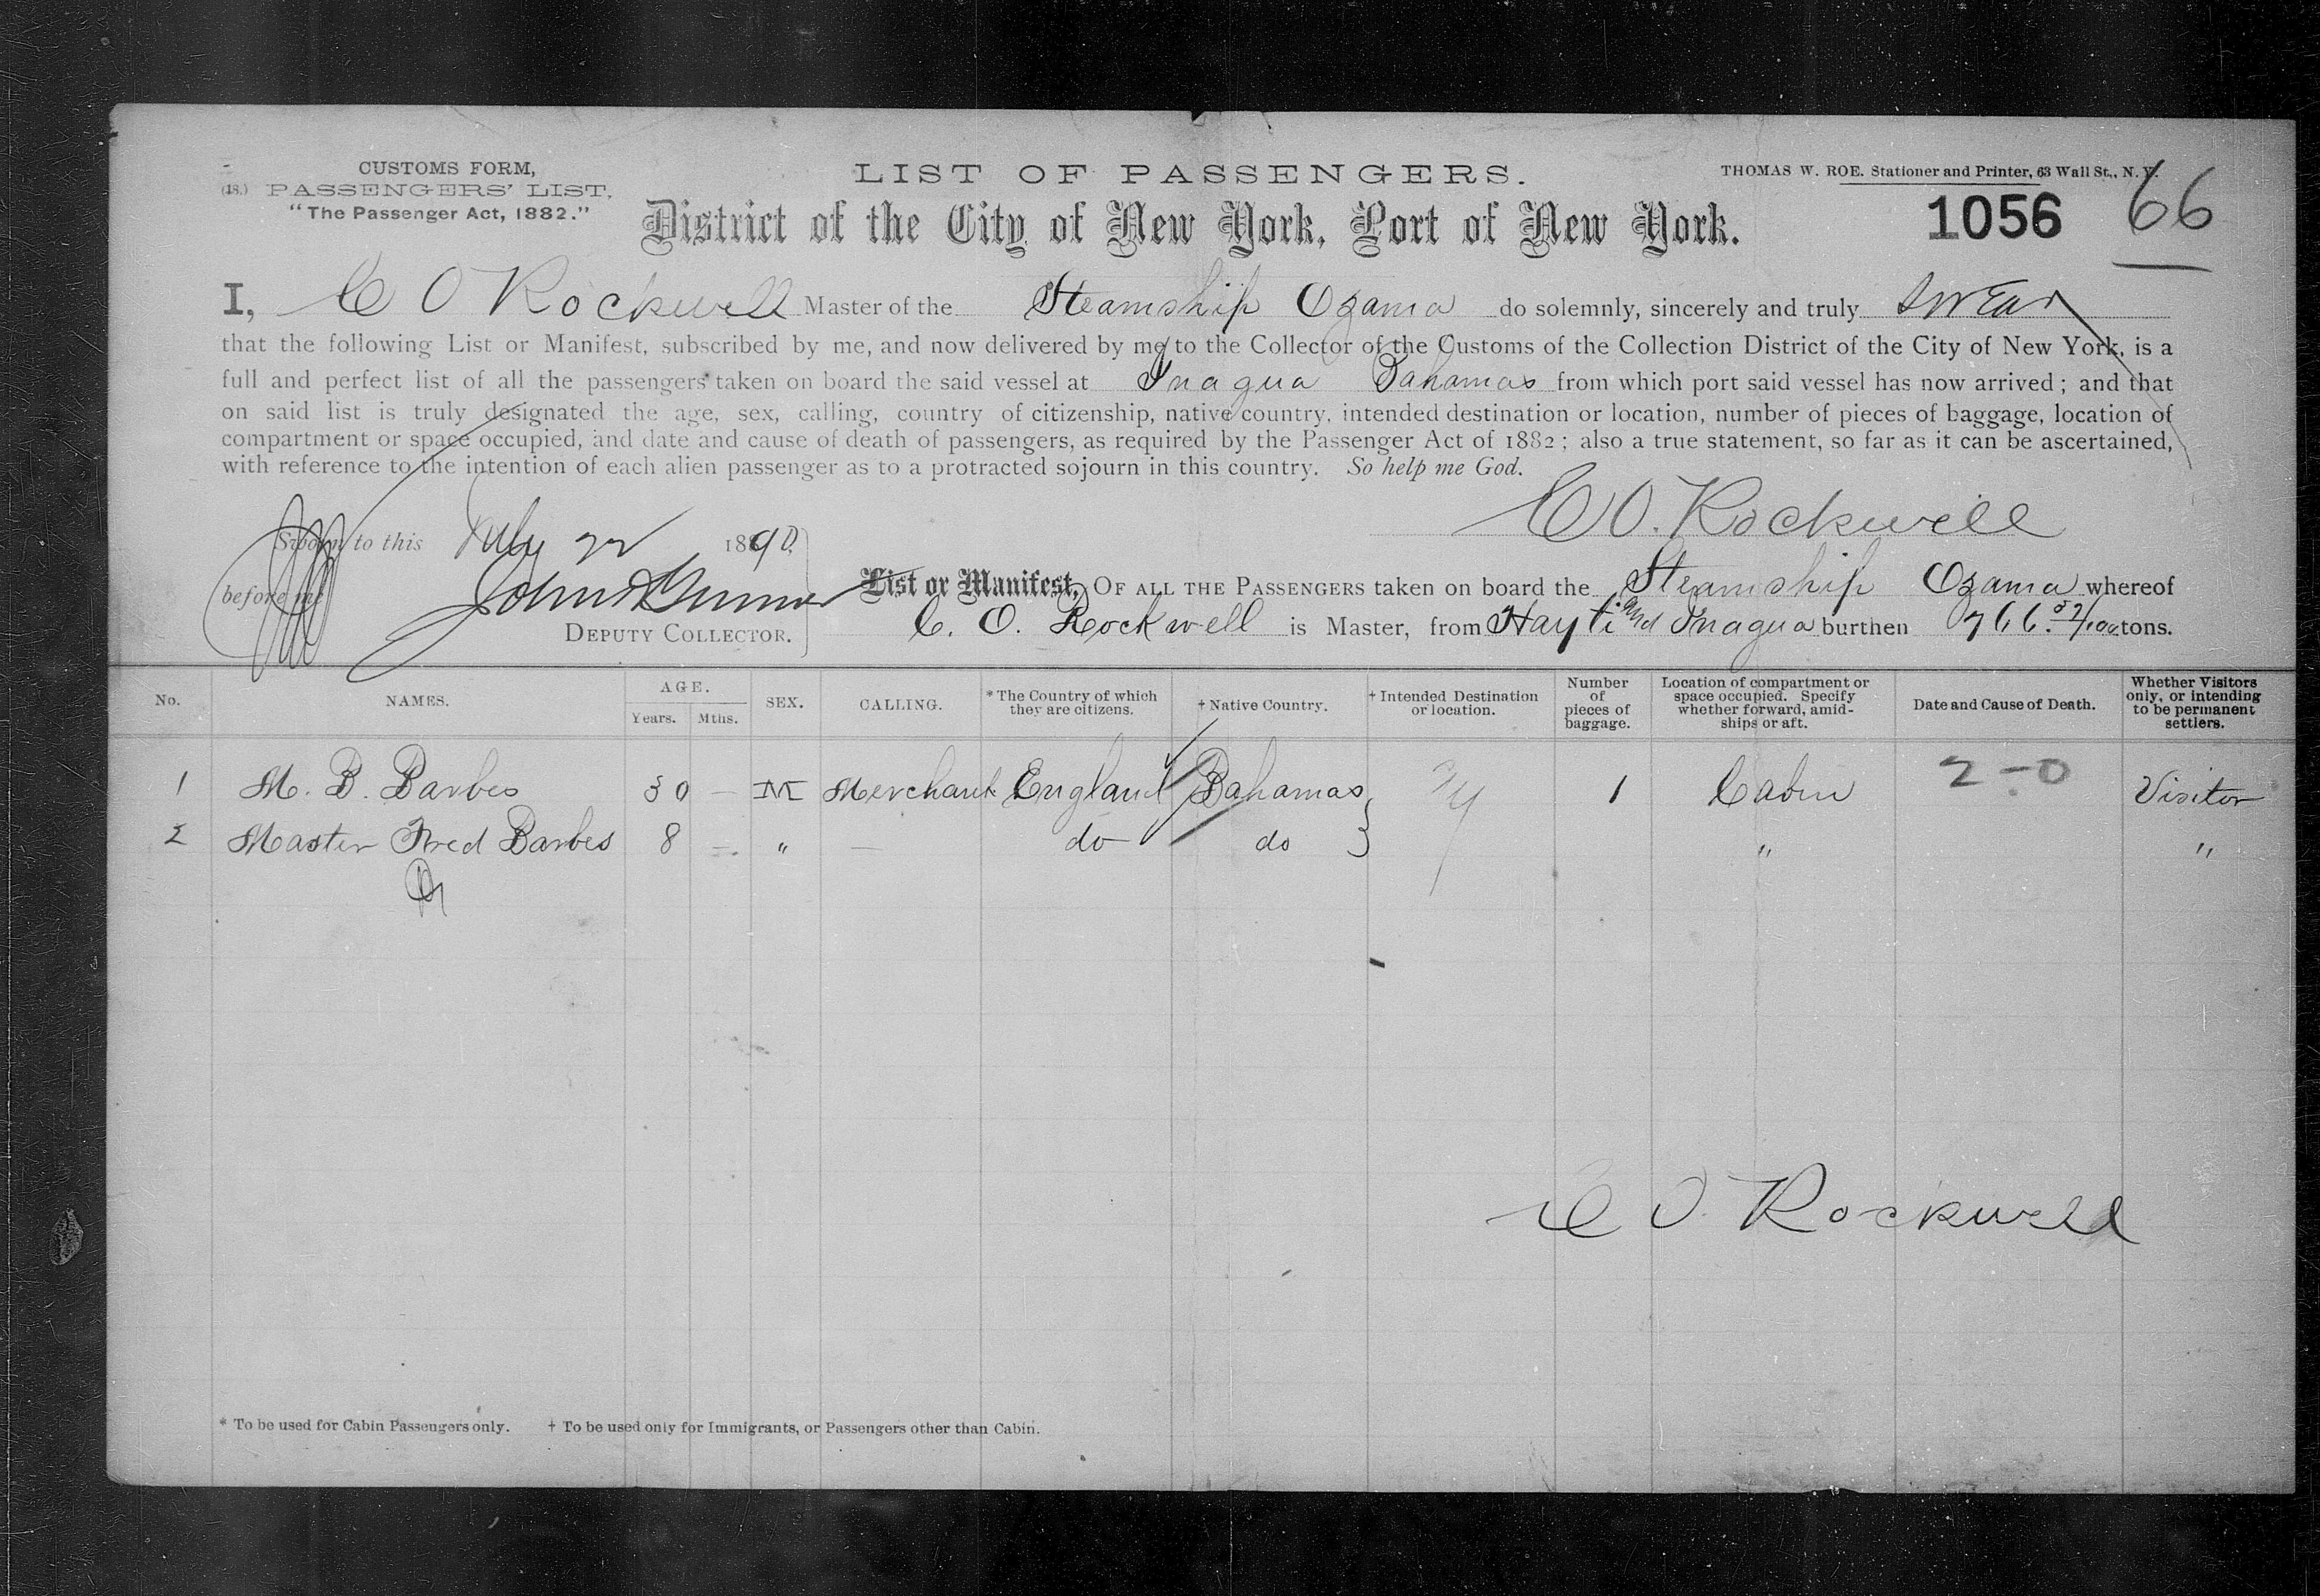 CUSTOMS FORM,
(18.) PASSENGERS' LIST.
"The Passenger Act, 1882."
LIST OF PASSENGERS.
District of the City of New York, Port of New York.
THOMAS W. ROE. Stationer and Printer, 63 Wall St., N.Y.
1056 66
I, C O Rockwell Master of the Steamship Ozama do solemnly, sincerely and truly swear
that the following List or Manifest, subscribed by me, and now delivered by me to the Collector of the Customs of the Collection District of the City of New York, is a
full and perfect list of all the passengers taken on board the said vessel at Inagua Bahamas from which port said vessel has now arrived; and that
on said list is truly designated the age, sex, calling, country of citizenship, native country, intended destination or location, number of pieces of baggage, location of
compartment or space occupied, and date and cause of death of passengers, as required by the Passenger Act of 1882; also a true statement, so far as it can be ascertained,
with reference to the intention of each alien passenger as to a protracted sojourn in this country. So help me God.
C O. Rockwell
Sworn to this July 22 1890
before me John
DEPUTY COLLECTOR.
List or Manifest, OF ALL THE PASSENGERS taken on board the Steamship Ozama whereof
C. O. Rockwell is Master, from Hayti and Inagua burthen 766. tons.
No. NAMES. AGE. Years. Mths. SEX. CALLING. * The Country of which they are citizens. † Native Country. † Intended Destination or location. Number of pieces of baggage. Location of compartment or space occupied. Specify whether forward, amidships or aft. Date and Cause of Death. Whether Visitors only, or intending to be permanent settlers.
1 M. B. Barbes 30 — M Merchant England Bahamas 1 Cabin 2-0 Visitor
2 Master Fred Barbes 8 — " — do do " "
C O. Rockwell
* To be used for Cabin Passengers only. † To be used only for Immigrants, or Passengers other than Cabin.